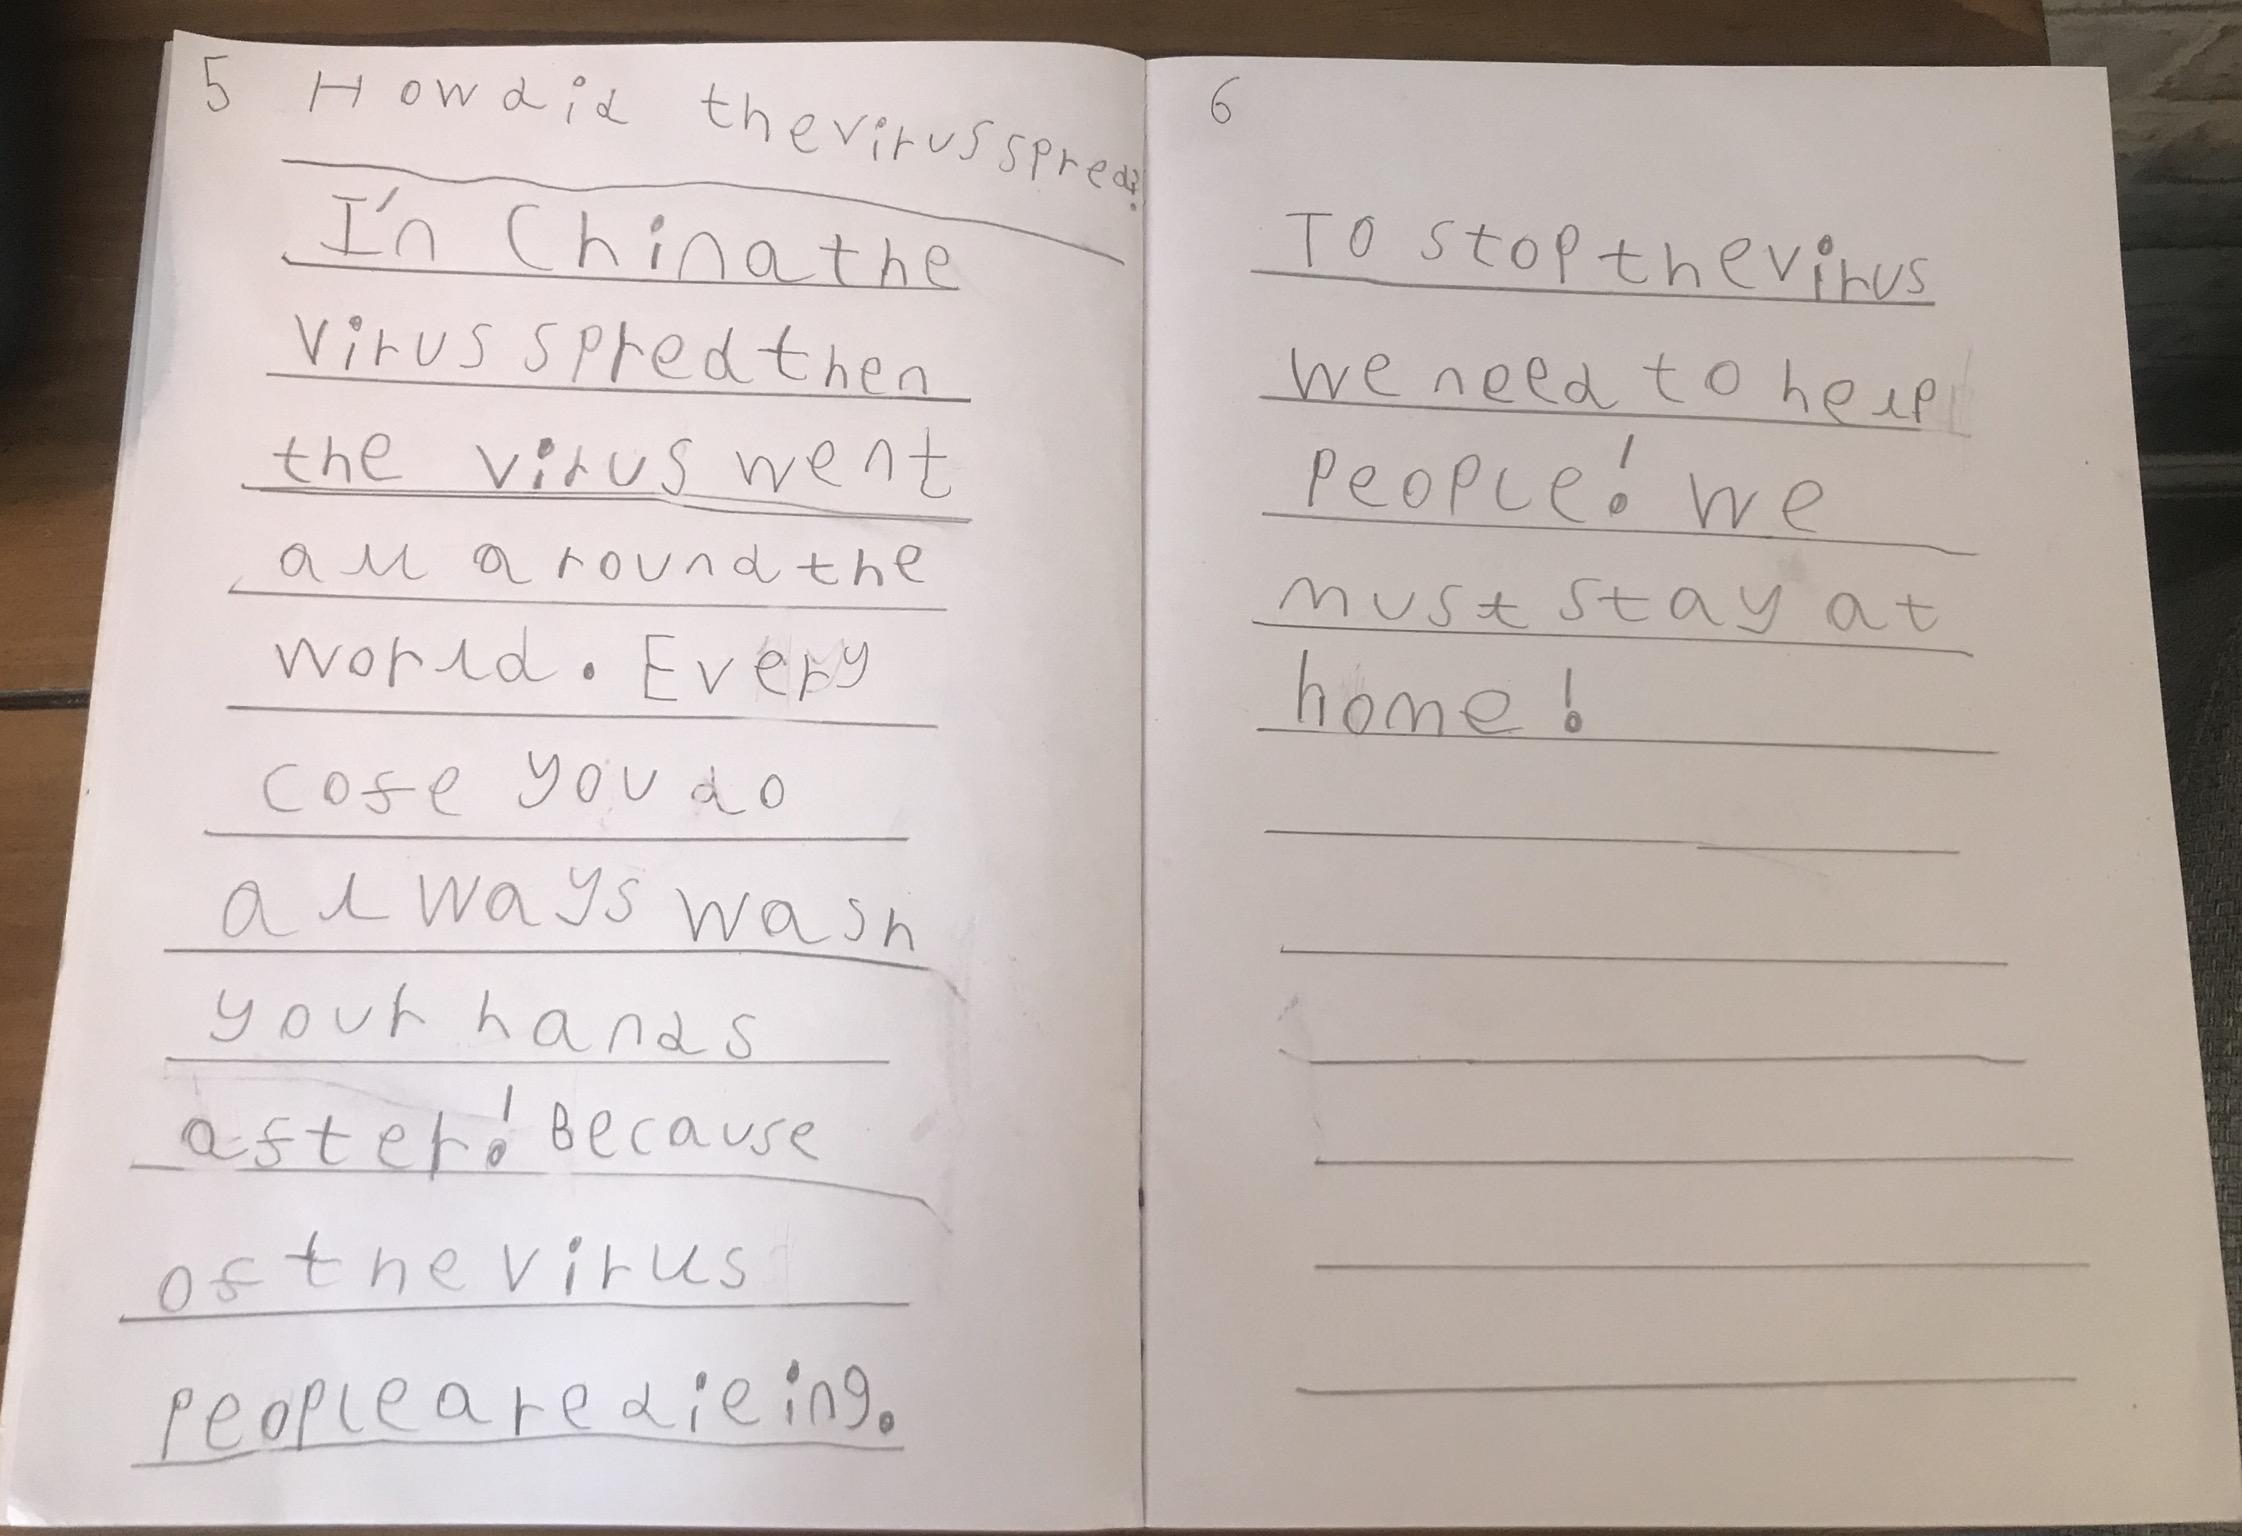 5 How did the virus spred?
I'n China the
virus spred then
the virus went
all around the
world. Every
cofe you do
always wash
your hands
after! Because
of the virus
people are dieing.
6
To stop the virus
we need to help
people! We
must stay at
home!